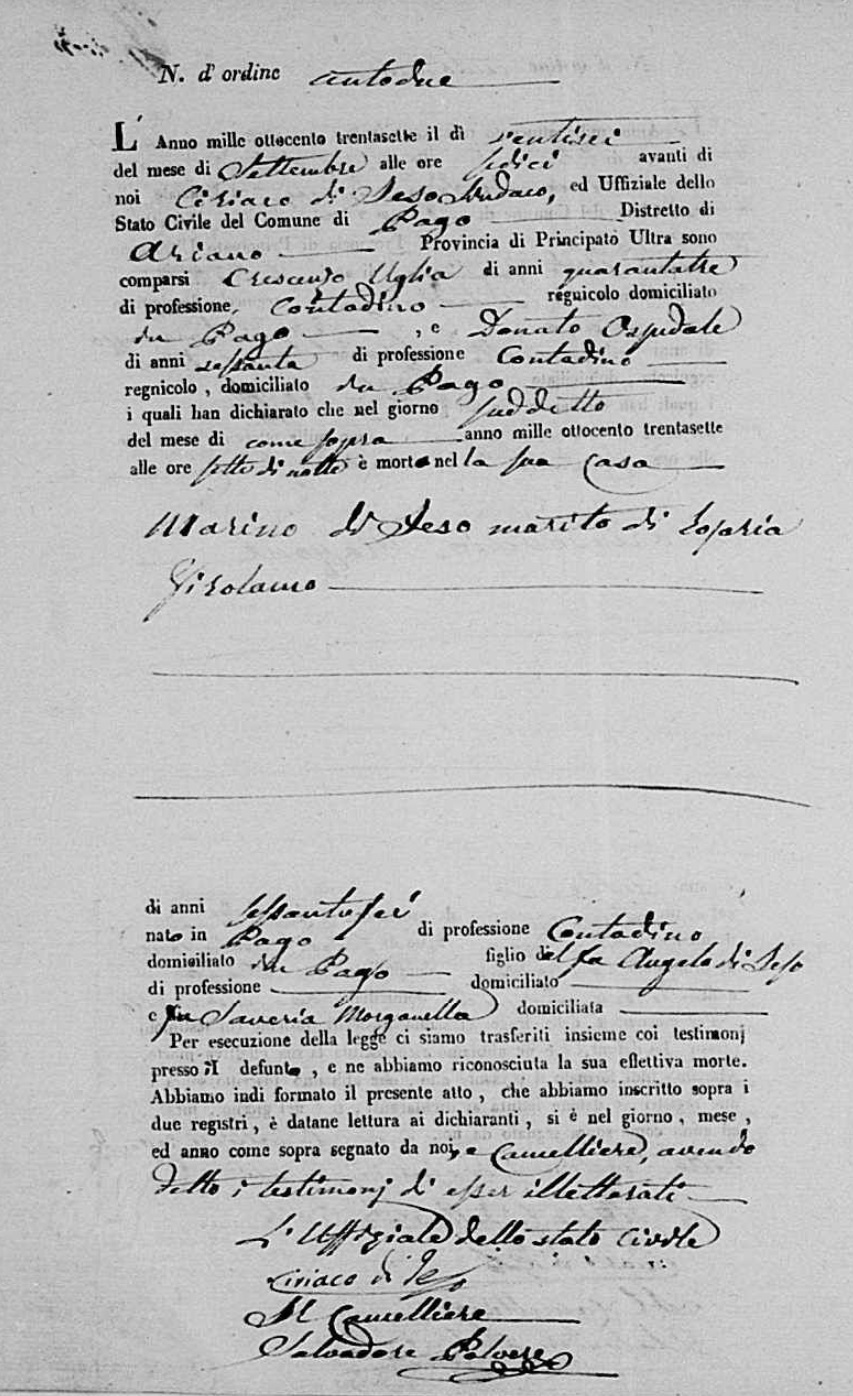 N. d' ordine centodue
L' Anno mille ottocento trentasette il dì ventisei
del mese di Settembre alle ore sedici avanti di
noi Ciriaco di Jeso Sindaco, ed Uffiziale dello
Stato Civile del Comune di Pago Distretto di
Ariano Provincia di Principato Ultra sono
comparsi Crescenzo Uglia di anni quarantatre
di professione Contadino regnicolo domiciliato
in Pago , e Donato Ospedale
di anni sessanta di professione Contadino
regnicolo , domiciliato in Pago
i quali han dichiarato che nel giorno suddetto
del mese di come sopra anno mille ottocento trentasette
alle ore sette di notte è morto nella sua casa
Marino di Jeso marito di
Girolamo
di anni sessantasei
nato in Pago di professione Contadino
domiciliato in Pago figlio del fu Angelo di Jeso
di professione domiciliato
e fu Saveria Morganella domiciliata
Per esecuzione della legge ci siamo trasferiti insieme coi testimonj
presso il defunto , e ne abbiamo riconosciuta la sua effettiva morte.
Abbiamo indi formato il presente atto , che abbiamo inscritto sopra i
due registri , è datane lettura ai dichiaranti , si è nel giorno , mese ,
ed anno come sopra segnato da noi, e Cancelliere, avendo
detto i testimonj di esser illetterati
L' Uffiziale dello stato Civile
Ciriaco di Jeso
Il Cancelliere
Salvadore Polvere